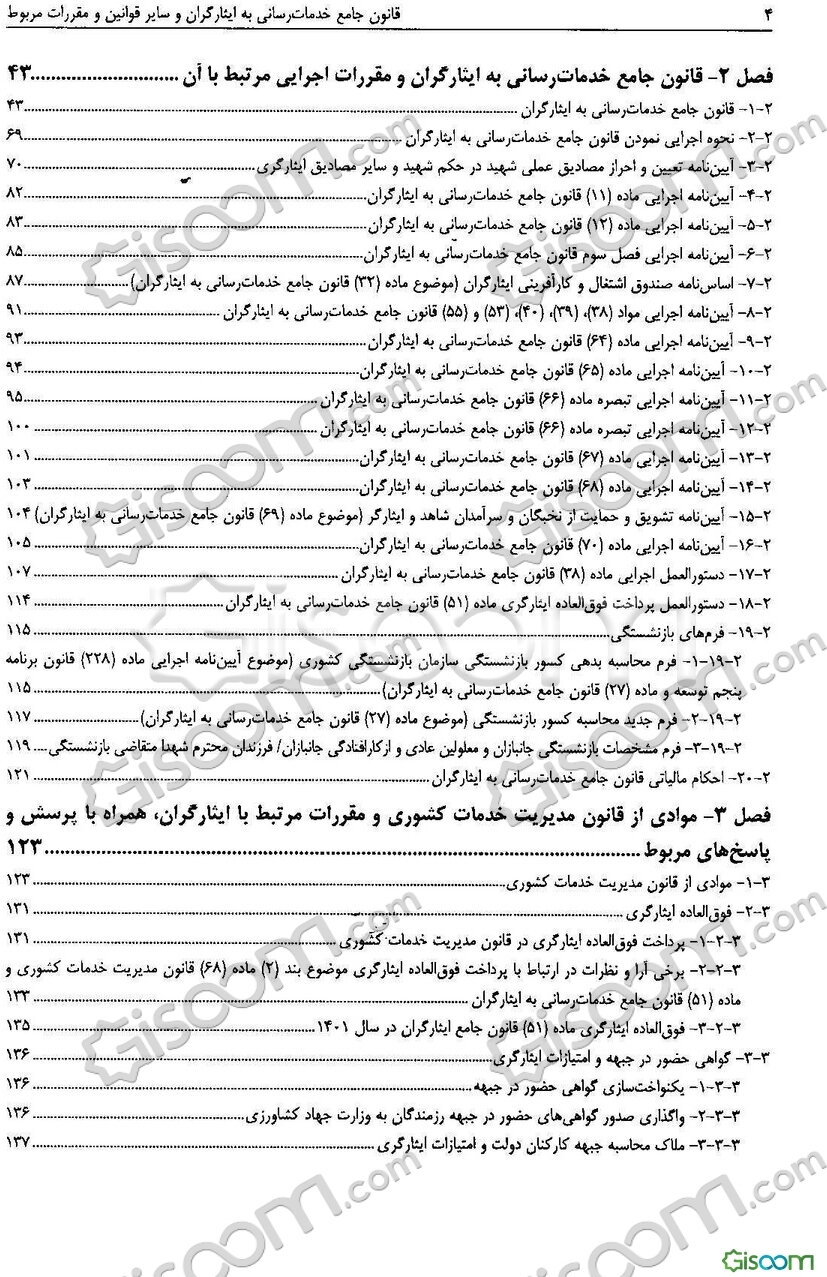 ۴ قانون جامع خدمات‌رسانی به ایثارگران و سایر قوانین و مقررات مربوط
فصل ۲- قانون جامع خدمات‌رسانی به ایثارگران و مقررات اجرایی مرتبط با آن ............................. ۴۳
۲-۱- قانون جامع خدمات‌رسانی به ایثارگران ............................. ۴۳
۲-۲- نحوه اجرایی نمودن قانون جامع خدمات‌رسانی به ایثارگران ............................. ۶۹
۲-۳- آیین‌نامه تعیین و احراز مصادیق عملی شهید در حکم شهید و سایر مصادیق ایثارگری ............................. ۷۰
۲-۴- آیین‌نامه اجرایی ماده (۱۱) قانون جامع خدمات‌رسانی به ایثارگران ............................. ۸۲
۲-۵- آیین‌نامه اجرایی ماده (۱۲) قانون جامع خدمات‌رسانی به ایثارگران ............................. ۸۳
۲-۶- آیین‌نامه اجرایی فصل سوم قانون جامع خدمات‌رسانی به ایثارگران ............................. ۸۵
۲-۷- اساس‌نامه صندوق اشتغال و کارآفرینی ایثارگران (موضوع ماده (۳۲) قانون جامع خدمات‌رسانی به ایثارگران) ............................. ۸۷
۲-۸- آیین‌نامه اجرایی مواد (۳۸)، (۳۹)، (۴۰)، (۵۳) و (۵۵) قانون جامع خدمات‌رسانی به ایثارگران ............................. ۹۱
۲-۹- آیین‌نامه اجرایی ماده (۶۴) قانون جامع خدمات‌رسانی به ایثارگران ............................. ۹۳
۲-۱۰- آیین‌نامه اجرایی ماده (۶۵) قانون جامع خدمات‌رسانی به ایثارگران ............................. ۹۴
۲-۱۱- آیین‌نامه اجرایی تبصره ماده (۶۶) قانون جامع خدمات‌رسانی به ایثارگران ............................. ۹۵
۲-۱۲- آیین‌نامه اجرایی تبصره ماده (۶۶) قانون جامع خدمات‌رسانی به ایثارگران ............................. ۱۰۰
۲-۱۳- آیین‌نامه اجرایی ماده (۶۷) قانون جامع خدمات‌رسانی به ایثارگران ............................. ۱۰۱
۲-۱۴- آیین‌نامه اجرایی ماده (۶۸) قانون جامع خدمات‌رسانی به ایثارگران ............................. ۱۰۳
۲-۱۵- آیین‌نامه تشویق و حمایت از نخبگان و سرآمدان شاهد و ایثارگر (موضوع ماده (۶۹) قانون جامع خدمات‌رسانی به ایثارگران) ۱۰۴
۲-۱۶- آیین‌نامه اجرایی ماده (۷۰) قانون جامع خدمات‌رسانی به ایثارگران ............................. ۱۰۵
۲-۱۷- دستورالعمل اجرایی ماده (۳۸) قانون جامع خدمات‌رسانی به ایثارگران ............................. ۱۰۷
۲-۱۸- دستورالعمل پرداخت فوق‌العاده ایثارگری ماده (۵۱) قانون جامع خدمات‌رسانی به ایثارگران ............................. ۱۱۴
۲-۱۹- فرم‌های بازنشستگی ............................. ۱۱۵
۲-۱۹-۱- فرم محاسبه بدهی کسور بازنشستگی سازمان بازنشستگی کشوری (موضوع آیین‌نامه اجرایی ماده (۲۲۸) قانون برنامه
پنجم توسعه و ماده (۲۷) قانون جامع خدمات‌رسانی به ایثارگران) ............................. ۱۱۵
۲-۱۹-۲- فرم جدید محاسبه کسور بازنشستگی (موضوع ماده (۲۷) قانون جامع خدمات‌رسانی به ایثارگران) ............................. ۱۱۷
۲-۱۹-۳- فرم مشخصات بازنشستگی جانبازان و معلولین عادی و ازکارافتادگی جانبازان/ فرزندان محترم شهدا متقاضی بازنشستگی .... ۱۱۹
۲-۲۰- احکام مالیاتی قانون جامع خدمات‌رسانی به ایثارگران ............................. ۱۲۱
فصل ۳- موادی از قانون مدیریت خدمات کشوری و مقررات مرتبط با ایثارگران، همراه با پرسش و
پاسخ‌های مربوط ............................. ۱۲۳
۳-۱- موادی از قانون مدیریت خدمات کشوری ............................. ۱۲۳
۳-۲- فوق‌العاده ایثارگری ............................. ۱۳۱
۳-۲-۱- پرداخت فوق‌العاده ایثارگری در قانون مدیریت خدمات کشوری ............................. ۱۳۱
۳-۲-۲- برخی آرا و نظرات در ارتباط با پرداخت فوق‌العاده ایثارگری موضوع بند (۲) ماده (۶۸) قانون مدیریت خدمات کشوری و
ماده (۵۱) قانون جامع خدمات‌رسانی به ایثارگران ............................. ۱۳۳
۳-۲-۳- فوق‌العاده ایثارگری ماده (۵۱) قانون جامع ایثارگران در سال ۱۴۰۱ ............................. ۱۳۵
۳-۳- گواهی حضور در جبهه و امتیازات ایثارگری ............................. ۱۳۶
۳-۳-۱- یکنواخت‌سازی گواهی حضور در جبهه ............................. ۱۳۶
۳-۳-۲- واگذاری صدور گواهی‌های حضور در جبهه رزمندگان به وزارت جهاد کشاورزی ............................. ۱۳۶
۳-۳-۳- ملاک محاسبه جبهه کارکنان دولت و امتیازات ایثارگری ............................. ۱۳۷
Gisoom.com
Gisoom